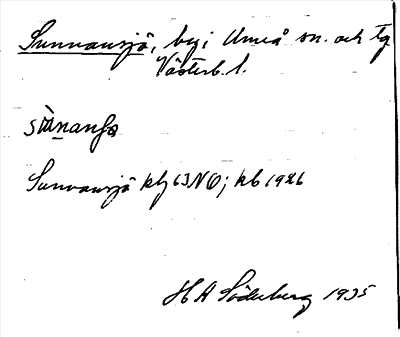 Sunnansjö, by i Umeå sn. och tg
Västerb. l.
Sunnansjö klj 63 NO; kb 1926
H A Söderberg 1935